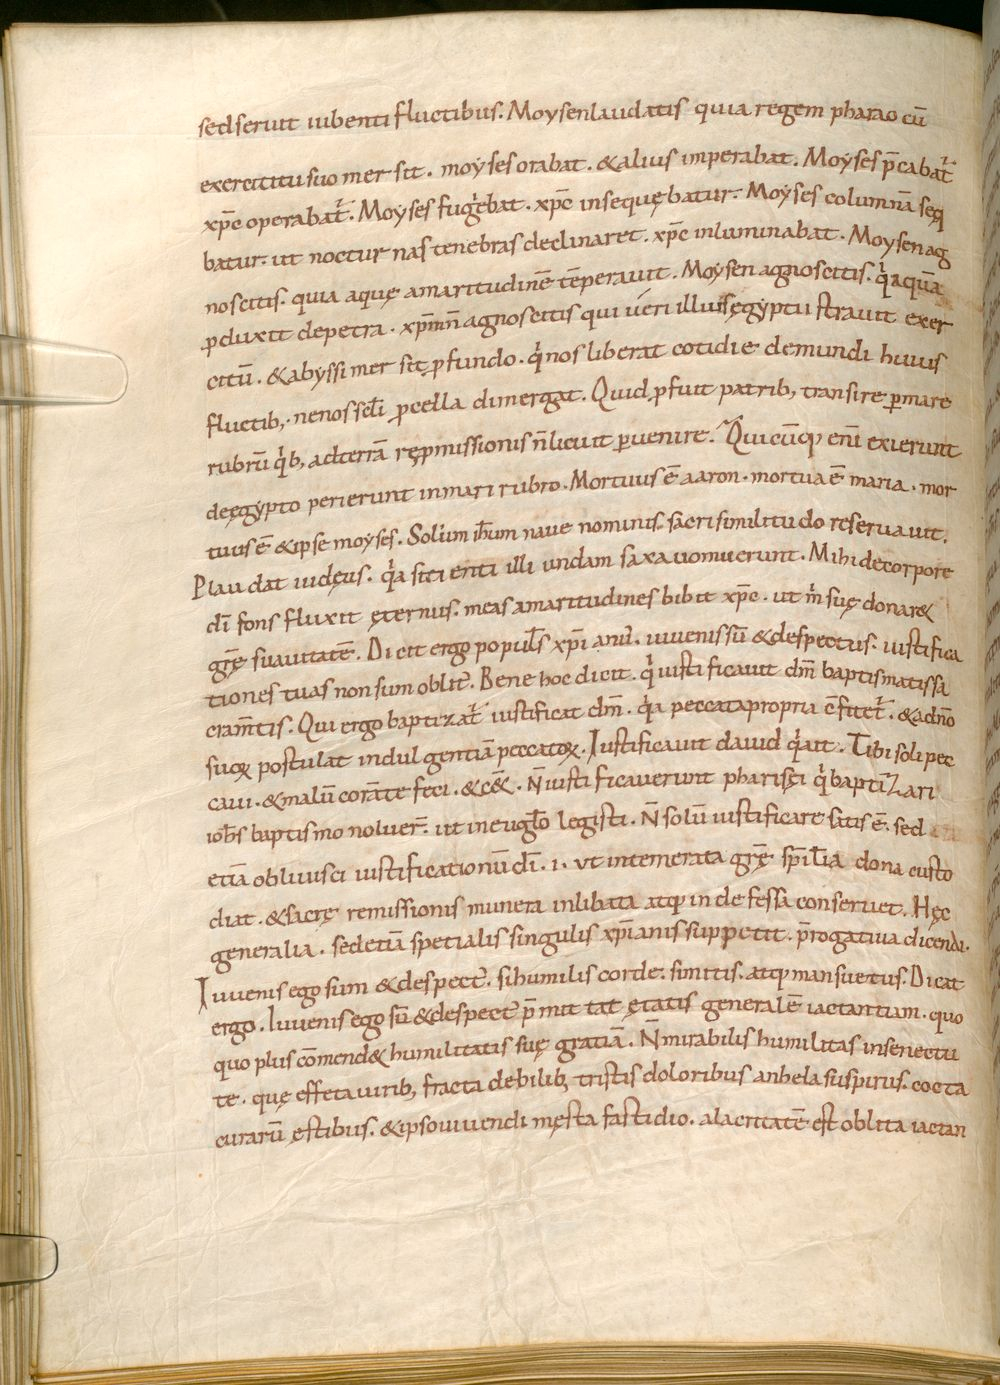 sed seruit iubenti fluctibus. Moysen laudatis quia regem pharao cū
exercitu suo mersit. moyses orabat. & alius imperabat. Moyses p̄cabat᷑
xp̄c operabat᷑. Moyses fugiebat. xp̄c insequębatur. Moyses columnā seq
batur. ut nocturnas tenebras declinaret. xp̄c inluminabat. Moysen ag
noscitis. quia aquę amaritudinē tēperauit. Moysen agnoscitis. qͥa aquā
ꝓduxit de petra. xp̄m n̄ agnoscitis qui ueri illius ęgyptii strauit exer
citū. & abyssi mersit ꝓfundo. qͥ nos liberat cotidie de mundi huius
fluctib; ne nos sc̄li ꝓcella dimergat. Quid ꝓfuit patrib; transire ꝑ mare
rubrū qͥb; ad terrā ręꝓmissionis n̄ licuit ꝑuenire. Quicūqꝫ eni̅ exierunt
de ęgypto perierunt in mari rubro. Mortuus ē aaron. mortua ē maria. mor
tuus ē & ipse moyses. Solum ih̄um naue nominis sacri similitudo reseruauit.
Plaudat iudęus. qͥa sitienti illi undam saxa uomuerunt. Mihi de corpore
dī fons fluxit ęternus. meas amaritudines bibit xp̄c. ut mͥ suę donar&
gr̄ę suauitatē. Dicit ergo populꝰ xp̄ianuꝰ. iuuenis sū & despectus. iustifica
tiones tuas non sum oblitꝰ. Bene hoc dicit. qͥ iustificauit dm̄ baptismatis sa
cram̄tis. Qui ergo baptizat᷑ iustificat dm̄. qͥa peccata propria c̄fitet᷑. & ad dn̄o
suoꝝ postulat indulgentiā peccatoꝝ. Iustificauit dauid qͥ ait. Tibi soli pec
caui. & malū corā te feci. & c&̄. N̄ iustificauerunt pharisęi qͥ baptizari
ioh̄s baptismo noluer̄. ut in eugl̄o legisti. N̄ solū iustificare satis ē. sed
etiā obliuisci iustificationū dī. .i. ut intemerata gr̄ę sp̄il̄ia dona custo
diat. & sacrę remissionis munera inlibata atqꝫ indefessa conseruet. Hęc
generalia. sed etiā specialis singulis xp̄ianis suppetit. p̄rogatiua dicendi.
Iuuenis ego sum & despectꝰ. si humilis corde. si mitis. atqꝫ mansuetus. Dicat
ergo. Iuuenis ego sū & despectꝰ p̄mittat ętatis generalē iactantiam. quo
quo plus cōmend& humilitatis suę gratiā. N̄ mirabilis humilitas in senectu
te. quę effeta uirib; fracta debilib; tristis doloribus anhela suspirus. cocta
curarū ęstibus. & ipso uiuendi męsta fastidio. alacritatē est oblita iactan